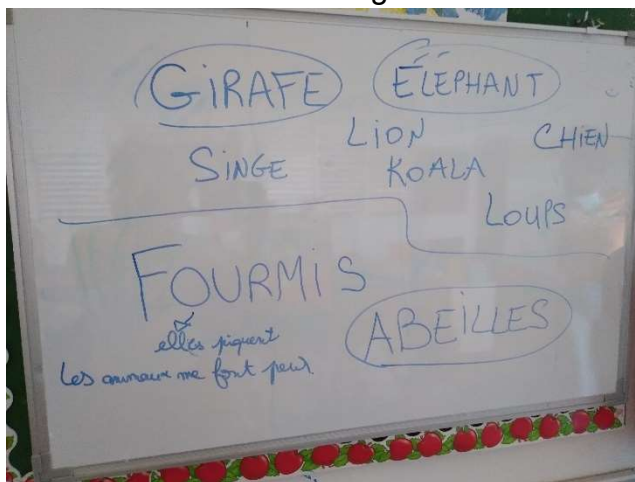 GIRAFE ÉLÉPHANT
LION CHIEN
SINGE KOALA
LOUPS
FOURMIS
ABEILLES
elles piquent
Les animaux me font peur.